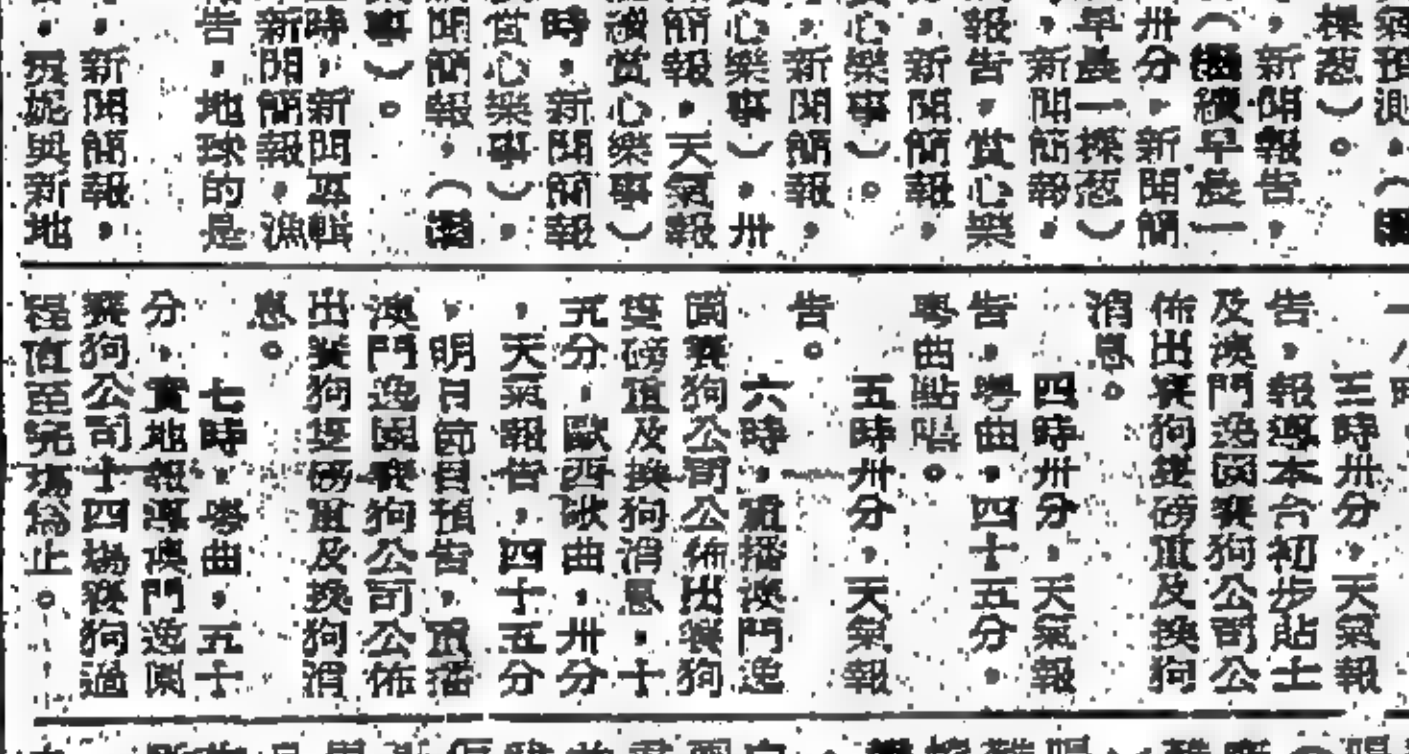 氣預測,(
棵葱)。
,新聞報告,
(繼續早晨一
卅分,新聞簡
早晨一棵葱)
,新聞簡報,
報告,賞心樂
,新聞簡報,
心樂事)。
,新聞簡報,
心樂事),卅
簡報,天氣報
續賞心樂事)
時,新聞簡報
賞心樂事),
聞簡報,(
)。
時,新聞專輯
新聞簡報,漁
告,地球的是
,新聞簡報,
,與新地
三時卅分,天氣報
告,報導本台初步貼士
及澳門逸園賽狗公司公
佈出賽狗隻磅重及換狗
消息。
四時卅分,天氣報
告,粵曲,四十五分,
粵曲點唱。
五時卅分,天氣報
告。
六時,重播澳門逸
園賽狗公司公佈出賽狗
隻磅重及換狗消息,十
五分,歐西歌曲,卅分
,天氣報告,四十五分
,明日節目預告,重播
澳門逸園賽狗公司公佈
出賽狗隻磅重及換狗消
息。
七時,粵曲,五十
分,實地報導澳門逸園
賽狗公司十四場賽狗過
程直至完場為止。